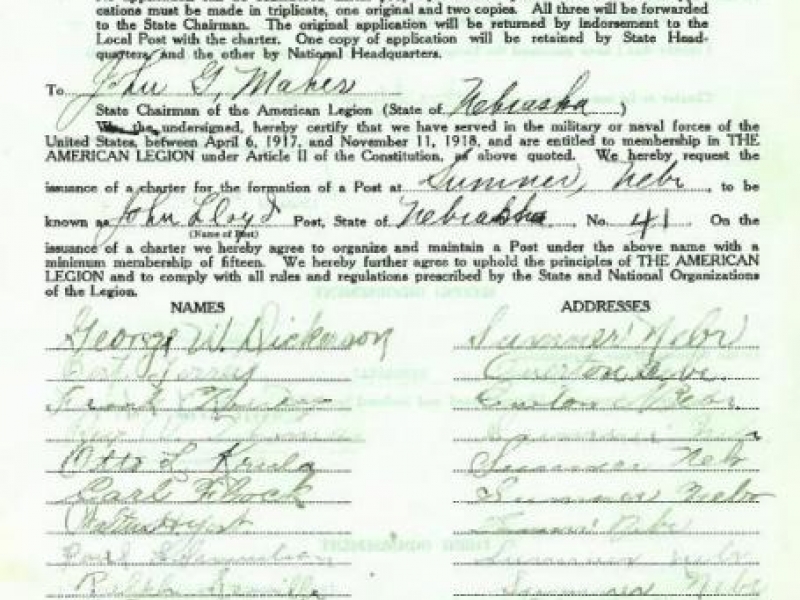 cations must be made in triplicate, one original and two copies. All three will be forwarded
to the State Chairman. The original application will be returned by indorsement to the
Local Post with the charter. One copy of application will be retained by State Head-
quarters and the other by National Headquarters.
To John G. Maher
State Chairman of the American Legion (State of Nebraska)
We, the undersigned, hereby certify that we have served in the military or naval forces of the
United States, between April 6, 1917, and November 11, 1918, and are entitled to membership in THE
AMERICAN LEGION under Article II of the Constitution, as above quoted. We hereby request the
issuance of a charter for the formation of a Post at Sumner, Nebr, to be
known as John Lloyd Post, State of Nebraska, No. 41 On the
(Name of Post)
issuance of a charter we hereby agree to organize and maintain a Post under the above name with a
minimum membership of fifteen. We hereby further agree to uphold the principles of THE AMERICAN
LEGION and to comply with all rules and regulations prescribed by the State and National Organizations
of the Legion.
NAMES ADDRESSES
George W. Dickerson Sumner Nebr
Overton Nebr.
Frank Nebr.
Otto L. Krula Sumner Nebr
Carl Sumner Nebr
Nebr
Sumner Nebr
Ralph Sumner Nebr